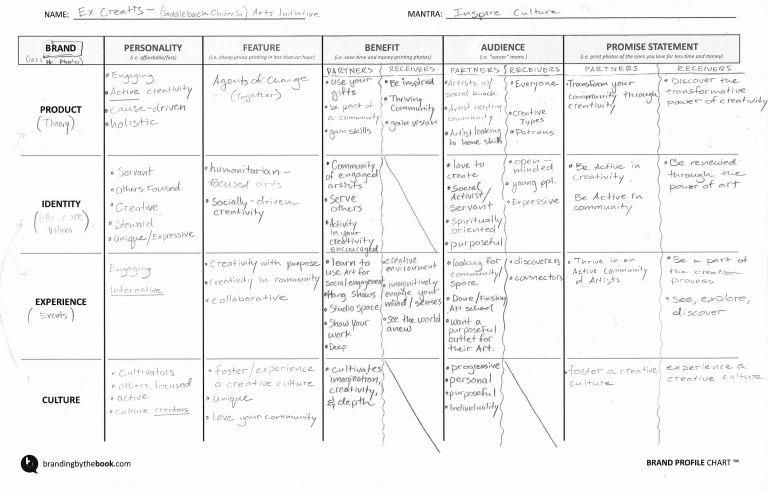 NAME: Ex Creatis - (Saddleback Church) Arts Initiative
MANTRA: Inspire Culture
BRAND
PERSONALITY
(i.e. affordable/fast)
FEATURE
(i.e. cheap photo printing in less than an hour)
BENEFIT
(i.e. save time and money printing photos)
AUDIENCE
(i.e. "soccer" moms)
PROMISE STATEMENT
(i.e. print photos of the ones you love for less time and money)
PARTNERS RECEIVERS
PARTNERS RECEIVERS
PARTNERS RECEIVERS
PRODUCT
(Theory)
• Engaging
• Active creativity
• Cause-driven
• holistic
Agents of Change
(Together)
• use your
gifts
• be part of
a community
• gain skills
• Be inspired
• Thriving
Community
• gain vision
• Artists w/
social knack
• Artist needing
community
• Artist looking
to hone skills
• Everyone
• Creative
Types
• Patrons
• Transform your
community through
creativity
• Discover the
transformative
power of creativity
IDENTITY
Values)
• Servant
• Others Focused
• Creative
• Steward
• Unique/Expressive
• humanitarian-
focused arts
• Socially-driven
creativity
• Community
of engaged
artists
• Serve
others
• Activity
in your
creativity
encouraged
• love to
create
• Social
Activist/
Servant
• spiritually
oriented
• purposeful
• open-
minded
• young ppl.
• Expressive
• Be Active in
creativity
Be Active in
community
• Be renewed
through the
power of art
EXPERIENCE
(Events)
Engaging
Interactive
• Creativity with purpose
• Creativity in community
• collaborative
• learn to
use Art for
social engagement
• Hang Shows
• Studio Space
• Show your
work
• Deep
• creative
environment
• imaginitively
engage your
mind/senses
• See the world
anew
• looking for
community/
space
• Done/Finishing
Art school
• want a
purposeful
outlet for
their Art.
• discoverers
• connectors
• Thrive in an
Active Community
of Artists
• Be a part of
the creation
process
• See, explore,
discover
CULTURE
• Cultivators
• others focused
• active
• culture creators
• foster/experience
a creative culture
• unique
• love your community
• cultivates
imagination,
creativity,
& depth
• progressive
• personal
• purposeful
• Individuality
• foster a creative
culture
experience a
creative culture
brandingbythebook.com
BRAND PROFILE CHART ™